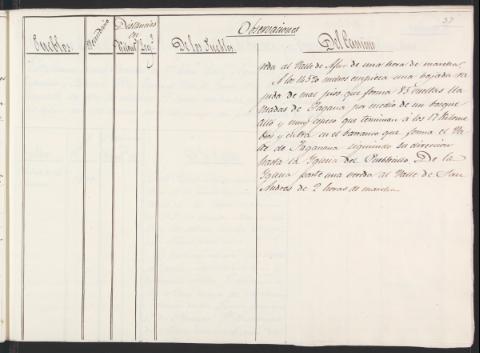 37
Observaciones
Distancias
en
Pueblos
Vecindario
Kilom.s
Leg.s
De los Pueblos
Del Camino
reda al Valle de Afur de una hora de marcha.
A los 14530 metros empieza una bajada
da de mal piso que forma 85 vueltas lla
madas de Tagana por medio de un bosque
alto y muy espeso que terminan á los 17 Kilome
y entra en el barranco que forma el Va
lle de Taganana siguiendo su direccion
hasta la Iglesia del Pueblecillo. De la
Iglesia parte una vereda al Valle de San
Andres de 2 horas de marcha.